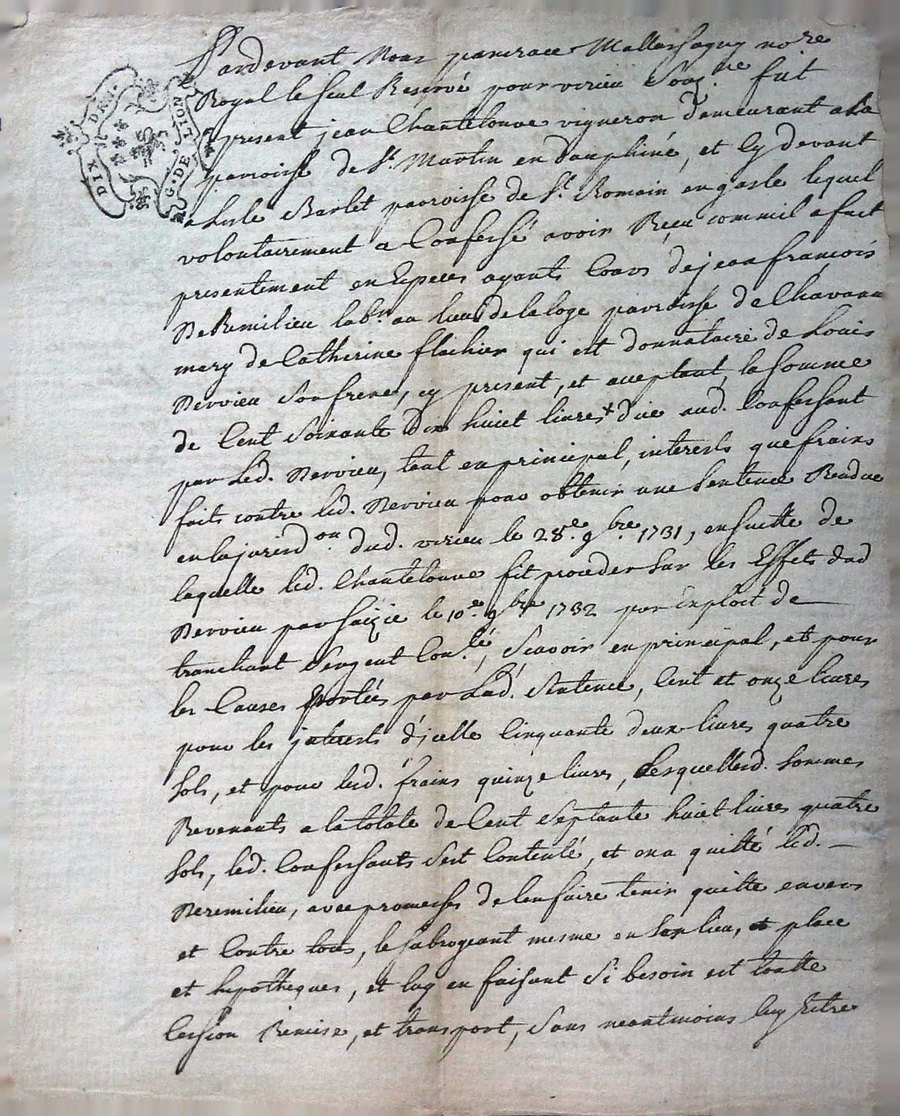 DIX DEN.
G. DE LION
Pardevant Nous pancrace Mallassagny no.re
Royal le seul Reservé pour virieu Soug.ne fut
present jean Chantelouve vigneron demeurant a la
parroisse de S.t Martin en dauphiné, et Cy devant
a Lisle Barlet parroisse de S.t Romain en gasle lequel
volontairement a Confessé avoir Reçu comm'il a fait
presentement en Especes ayants Cours de jean françois
DeRemilieu lab.r au lieu de la loge parroisse de Chavanay
mary de Catherine flachier qui est donnataire de Louis
Dervieu son frere, cy present, et acceptant, la somme
de Cent Soixante dix huict livres düe aud. Confessant
par Led. Dervieu, tout en principal, interests que frains
faits contre led. Dervieu pour obtenir une Sentence Rendue
en la jurisd.on dud. virieu le 28.e 9.bre 1731, en suitte de
laquelle led. Chantelouve fit proceder sur les Effets dud
Dervieu par saizie le 10.e 9.bre 1732 par Exploit de
tranchant Sergent Con.lé, Scavoir en principal, et pour
les Causes portées par Lad. Sentence, Cent et onze livres
pour les jnterests d'jcelle Cinquante deux livres quatre
sols, et pour lesd. frains quinze livres, Lesquellesd. sommes
Revenants a la totale de Cent Septante huict livres quatre
sols, led. Confessants s'est Contenté, et en a quitté led.
Deremilieu, avec promesses de l'en faire tenir quitte envers
et Contre tous, le subrogeant mesme en son lieu, et place
et hypotheques, et luy en faisant Si besoin est toutte
Cession Remise, et transport, Sans neantmoins luy Estre